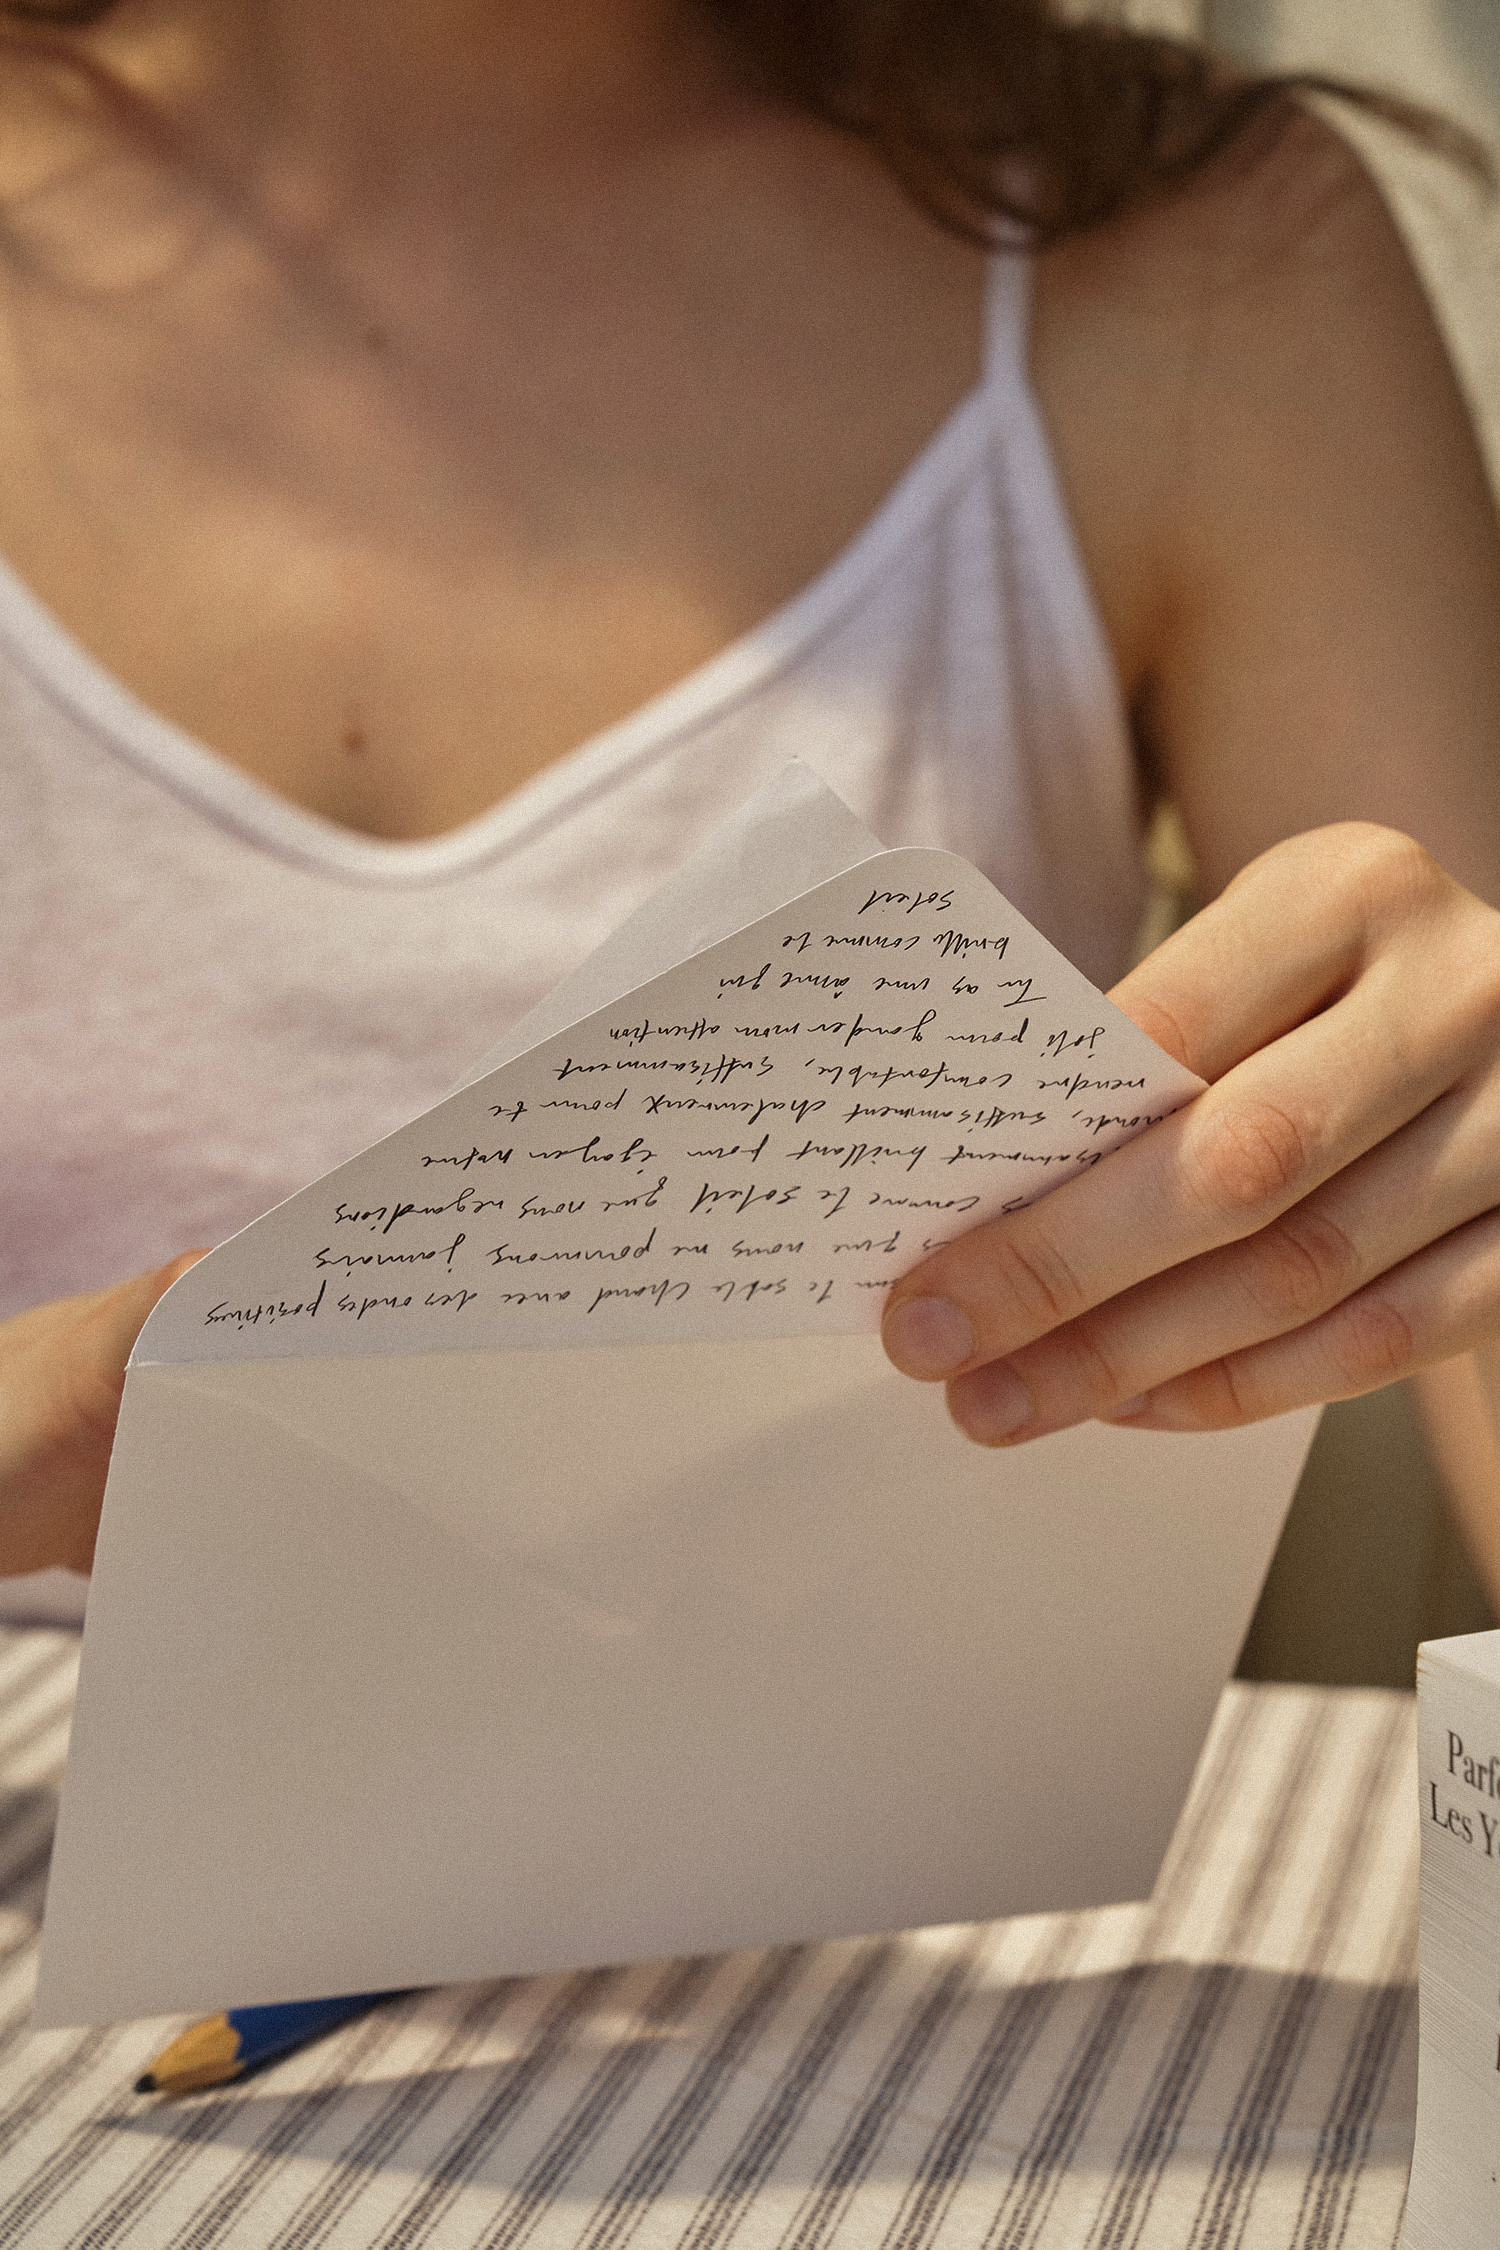 le sable chaud avec des ondes positives
que nous ne pourrons jamais
comme le soleil que nous regardions
brillant pour égayer notre
suffisamment chaleureux pour te
rendre confortable, suffisamment
joli pour garder mon attention
Tu as une âme qui
brille comme le
soleil
Les